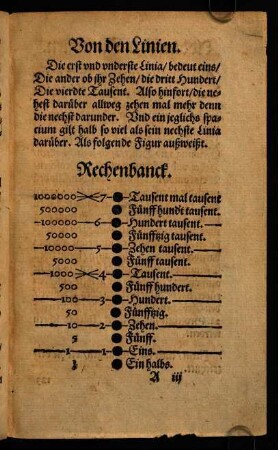 Von den Linien.
Die erst vnd vnderste Linia/ bedeut eins/
Die ander ob jhr Zehen/ die dritt Hundert/
Die vierdte Tausent. Also hinfort/ die ne-
hest darüber allweg zehen mal mehr denn
die nechst darunder. Vnd ein jeglichs spa-
cium gilt halb so viel als sein nechste Linia
darüber. Als folgende Figur außweißt.
Rechenbanck.
1000000 7 Tausent mal tausent
500000 Fünff hundt tausent.
100000 6 Hundert tausent.
50000 Fünfftzig tausent.
10000 5 Zehen tausent.
5000 Fünff tausent.
1000 4 Tausent.
500 Fünff hundert.
100 3 Hundert.
50 Fünfftzig.
10 2 Zehen.
5 Fünff.
1 1 Eins.
½ Ein halbs.
A iij